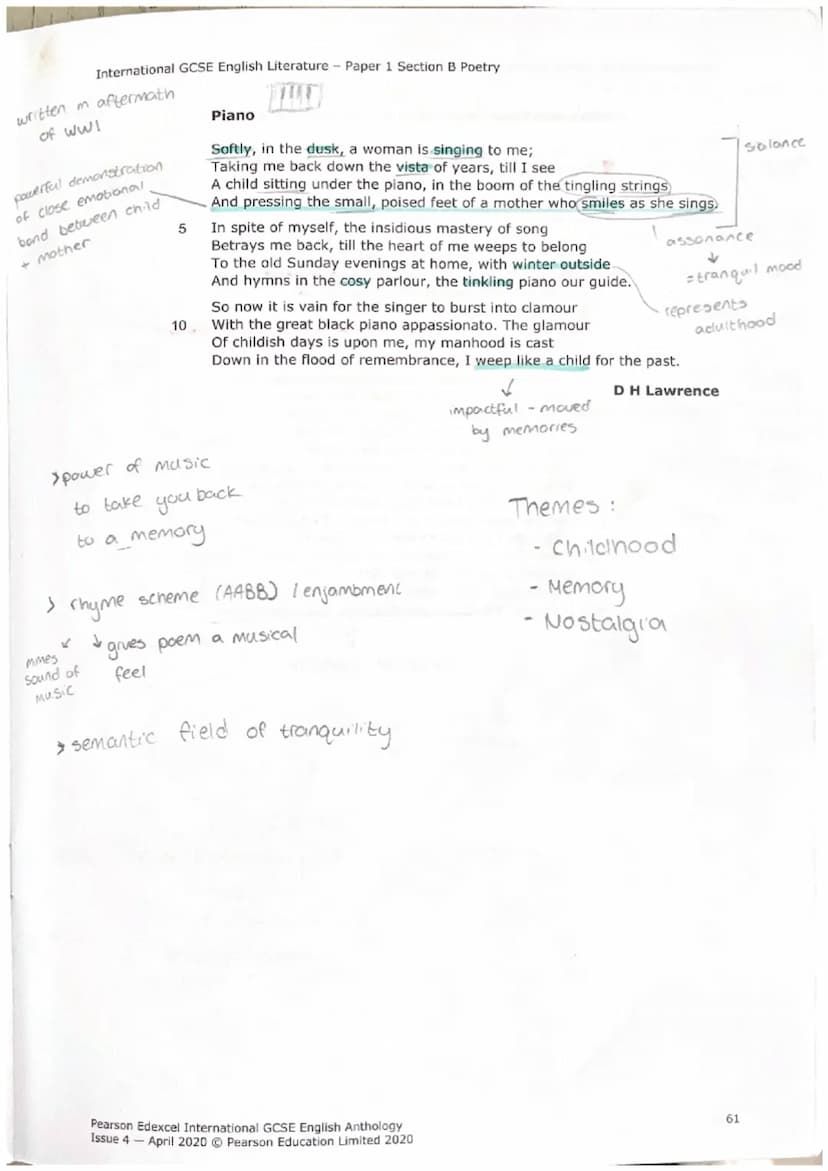 International GCSE English Literature – Paper 1 Section B Poetry
written in aftermath
of WW1
Piano
Softly, in the dusk, a woman is singing to me;
Taking me back down the vista of years, till I see
A child sitting under the piano, in the boom of the tingling strings
And pressing the small, poised feet of a mother who smiles as she sings.
sibilance
powerful demonstration
of close emotional
bond between child
+ mother
5 In spite of myself, the insidious mastery of song
Betrays me back, till the heart of me weeps to belong
To the old Sunday evenings at home, with winter outside
And hymns in the cosy parlour, the tinkling piano our guide.
assonance
= tranquil mood
represents
adulthood
So now it is vain for the singer to burst into clamour
10 With the great black piano appassionato. The glamour
Of childish days is upon me, my manhood is cast
Down in the flood of remembrance, I weep like a child for the past.
D H Lawrence
impactful - moved
by memories
>power of music
to take you back
to a memory
Themes :
- Childhood
- Memory
- Nostalgia
> rhyme scheme (AABB) / enjambment
gives poem a musical
feel
sound of
music
> semantic field of tranquility
Pearson Edexcel International GCSE English Anthology
Issue 4 — April 2020 © Pearson Education Limited 2020
61